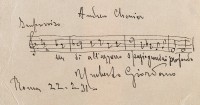 Improvviso Andrea Chénier
un dì all'azzurro spazio guardai profondo
Umberto Giordano
Roma 22-2-